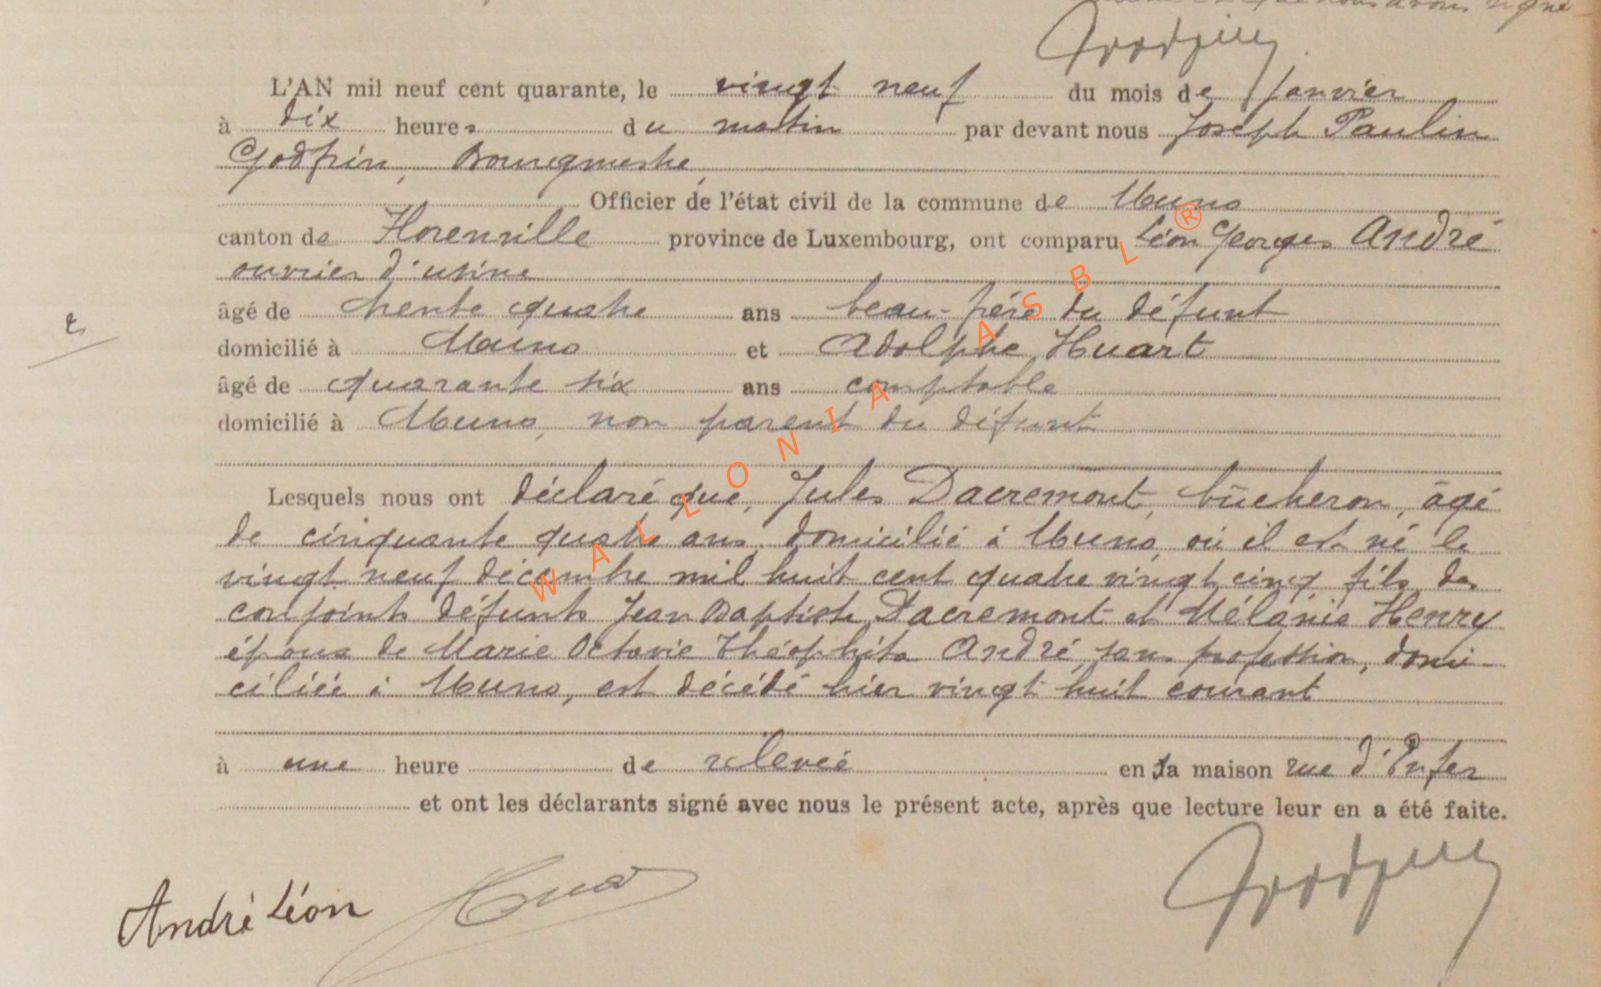 L'AN mil neuf cent quarante, le vingt neuf du mois de Janvier
à dix heures du matin par devant nous Joseph Paulin
Godfrin, Bourgmestre,
Officier de l'état civil de la commune de Muno
canton de Florenville province de Luxembourg, ont comparu Léon Georges André
ouvrier d'usine
âgé de trente quatre ans beau-frère du défunt
domicilié à Muno et Adolphe Huart
âgé de quarante six ans comptable
domicilié à Muno, non parent du défunt
Lesquels nous ont déclaré que, Jules Dacremont, bûcheron, âgé
de cinquante quatre ans, domicilié à Muno, où il est né le
vingt neuf décembre mil huit cent quatre vingt cinq fils des
conjoints défunts Jean Baptiste Dacremont et Mélanie Henry
époux de Marie Octavie Théophita André sans profession, domi-
ciliée à Muno, est décédé hier vingt huit courant
à une heure de relevée en sa maison rue d'Enfer
et ont les déclarants signé avec nous le présent acte, après que lecture leur en a été faite.
André Léon
WALLONIA ASBL ®